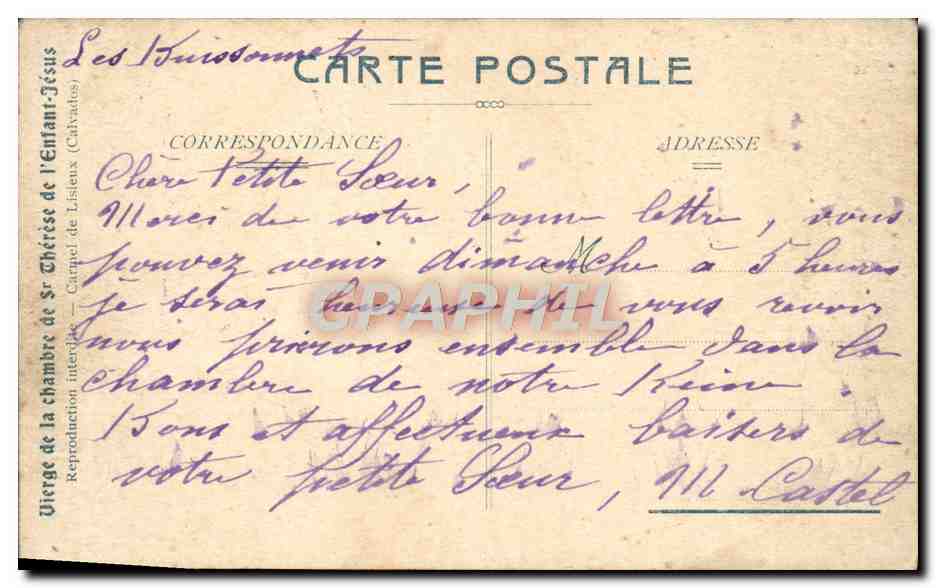 Vierge de la chambre de Sr Thérèse de l'Enfant-Jésus
Reproduction interdite — Carmel de Lisieux (Calvados)
Les Buissonnets
CARTE POSTALE
CORRESPONDANCE
ADRESSE
Chère Petite Sœur,
Merci de votre bonne lettre, vous
pouvez venir dimanche à 5 heures
je serai heureuse de vous revoir
nous prierons ensemble dans la
chambre de notre Reine.
Bons et affectueux baisers de
votre petite Sœur, M Castel
CPAPHIL